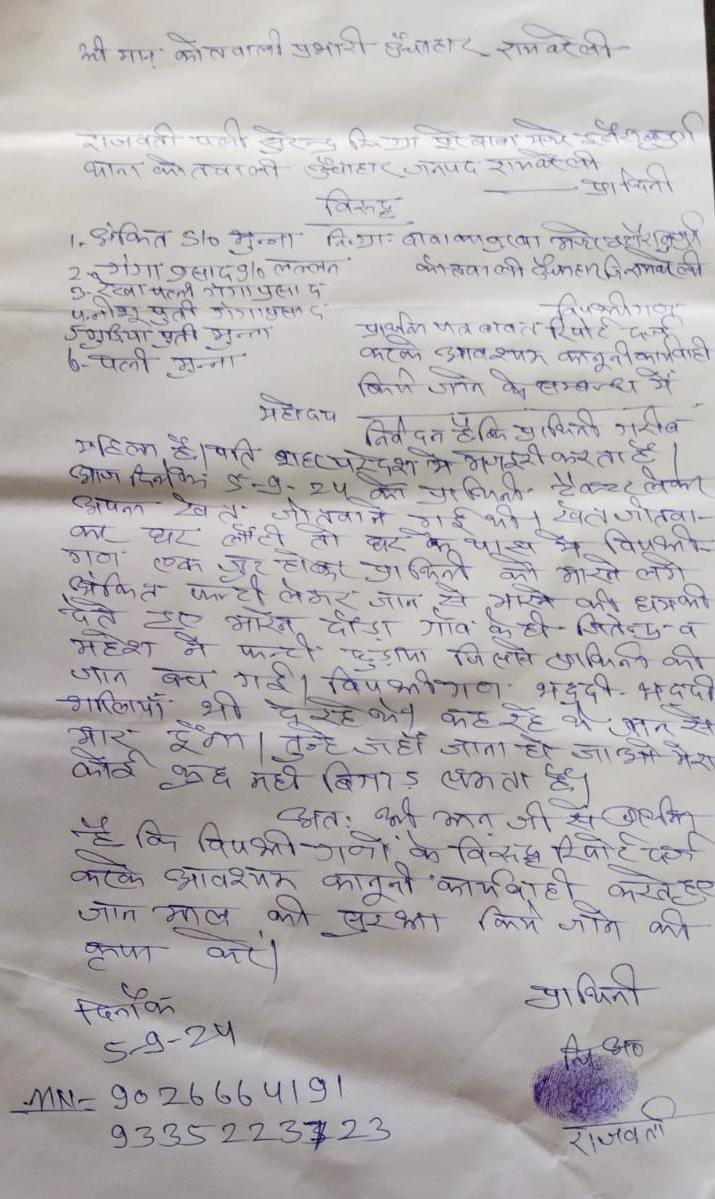 श्री मान् कोतवाली प्रभारी ऊँचाहार रायबरेली
राजवती पत्नी सुरेन्द्र मजरे
थाना कोतवाली ऊँचाहार जनपद रायबरेली
प्रार्थिनी
विरुद्ध
1. अंकित S/o मुन्ना नि.ग्रा: बाबा का पुरवा मजरे
2. गंगा प्रसाद S/o लल्लन कोतवाली ऊँचाहार जि. रायबरेली
3. रेखा पत्नी गंगा प्रसाद
विपक्षीगण
4. पुत्री गंगा प्रसाद
प्रार्थना पत्र बावत रिपोर्ट दर्ज
5. गुड़िया पुत्री मुन्ना
करके आवश्यक कानूनी कार्यवाही
6. पत्नी मुन्ना
किये जाने के सम्बन्ध में
महोदय
निवेदन है कि प्रार्थिनी गरीब
महिला है। पति परदेश में मजदूरी करता है।
आज दिनांक 5-9-24 को प्रार्थिनी ट्रैक्टर लेकर
अपना खेत जोतवाने गई थी। खेत जोतवा-
कर घर लौटी तो घर के पास में विपक्षी-
गण एक जुट होकर प्रार्थिनी को मारने लगे
अंकित लेकर जान से मारने की धमकी
देते हुए मारने दौड़ा गाँव के ही जितेन्द्र व
महेश ने छुड़ाया जिससे प्रार्थिनी की
जान बच गई। विपक्षीगण भद्दी-भद्दी
गालियाँ भी दे रहे थे। कह रहे थे जान से
मार दूँगा। तुम्हें जहाँ जाना हो जाओ मेरा
कोई कुछ नहीं बिगाड़ सकता है।
अतः श्री मान् जी से प्रार्थना
है कि विपक्षी गणों के विरुद्ध रिपोर्ट दर्ज
करके आवश्यक कानूनी कार्यवाही करते हुए
जान माल की सुरक्षा किये जाने की
कृपा करें।
दिनाँक
प्रार्थिनी
5-9-24
नि0अं0
MN- 9026664191
राजवती